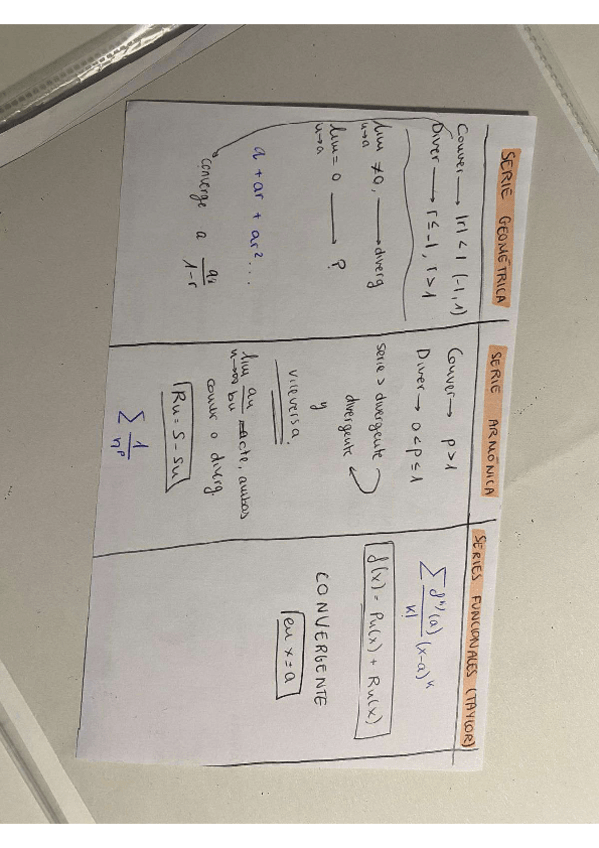 SERIE GEOMÉTRICA
Conver → |r| < 1 (-1,1)
Diver → r ≤ -1, r > 1
lim ≠ 0, → diverg
n→a
lim = 0 → ?
n→a
a + ar + ar² ...
converge a a₁/1-r
SERIE ARMÓNICA
Conver → p > 1
Diver → 0 < p ≤ 1
serie > divergente
divergente
y
viceversa.
lim an/bn = cte, ambas
n→∞
conv o diverg.
Rn = S - Sn
∑ 1/n^p
SERIES FUNCIONALES (TAYLOR)
∑ f^(k)(a)/k! (x-a)^k
f(x) = Pn(x) + Rn(x)
CONVERGENTE
en x = a